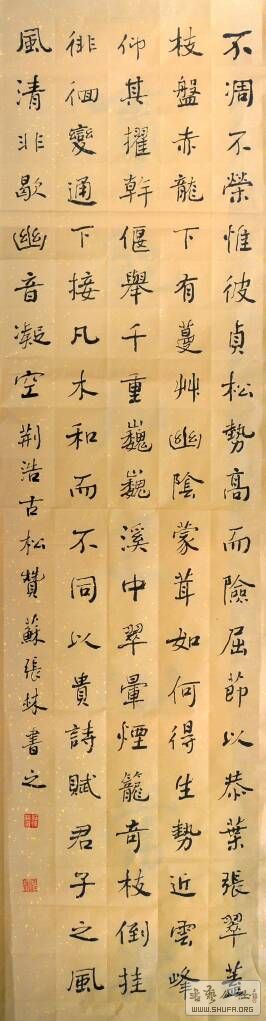 不凋不榮惟彼貞松勢高而險屈節以恭葉張翠蓋
枝盤赤龍下有蔓艸幽陰蒙茸如何得生勢近雲峰
仰其擢幹偃舉千重巍巍溪中翠暈煙籠奇枝倒挂
徘徊變通下接凡木和而不同以貴詩賦君子之風
風清非歇幽音凝空荆浩古松贊蘇張林書之
WWW.SHUFA.ORG